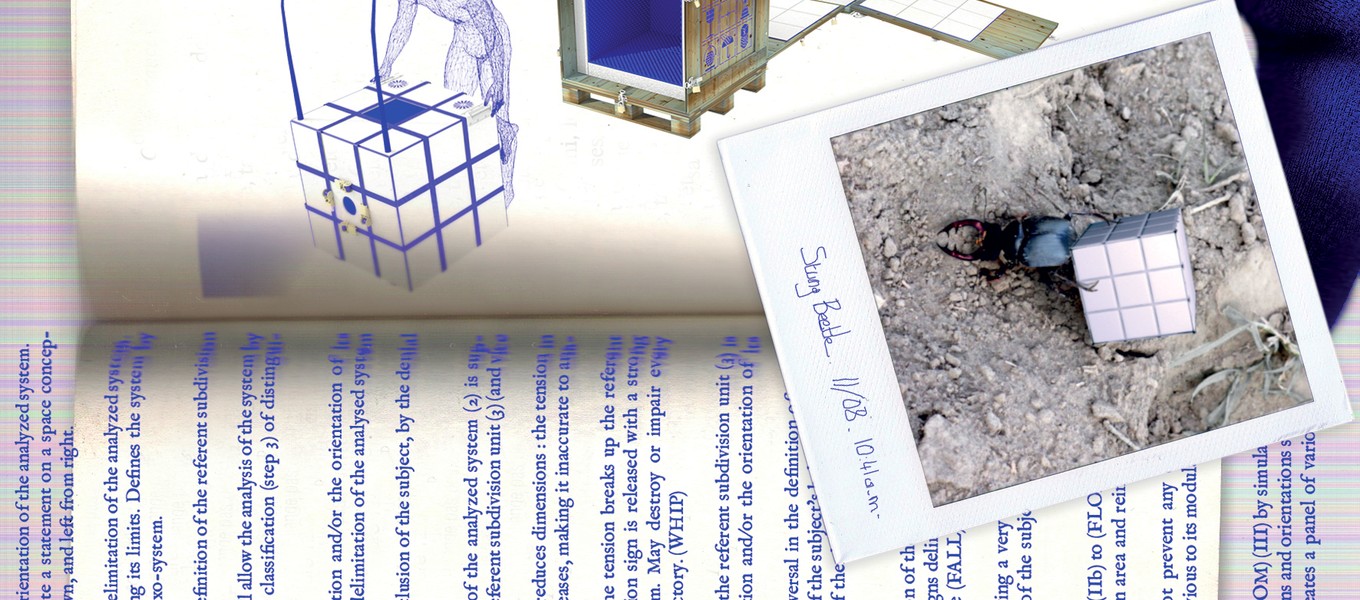 rientation of the analyzed system.
te a statement on a space concep-
wn, and left from right.
elimitation of the analyzed system,
ng its limits. Defines the system by
xo-system.
efinition of the referent subdivision
l allow the analysis of the system by
classification (step 3) of distingu
tion and/or the orientation of
delimitation of the analysed system
lusion of the subject, by the denial
of the analyzed system (2) is
ferent subdivision unit (3) (and
reduces dimensions : the tension
eases, making it inaccurate to
ne tension breaks up the
ion sign is released with a strong
m. May destroy or impair every
ctory. (WHIP)
the referent subdivision unit (3)
ction and/or the orientation of
versal in the definition of
f the subject
f the
n of th
gns defin
e (FALL
ing a very
of the subje
(IIb) to (FLO
n area and rei
ot prevent any
ious to its modul
OM) (III) by simula
ns and orientations s
eates a panel of vario
Strong Beetle. 11/08. 10:41a.m.-